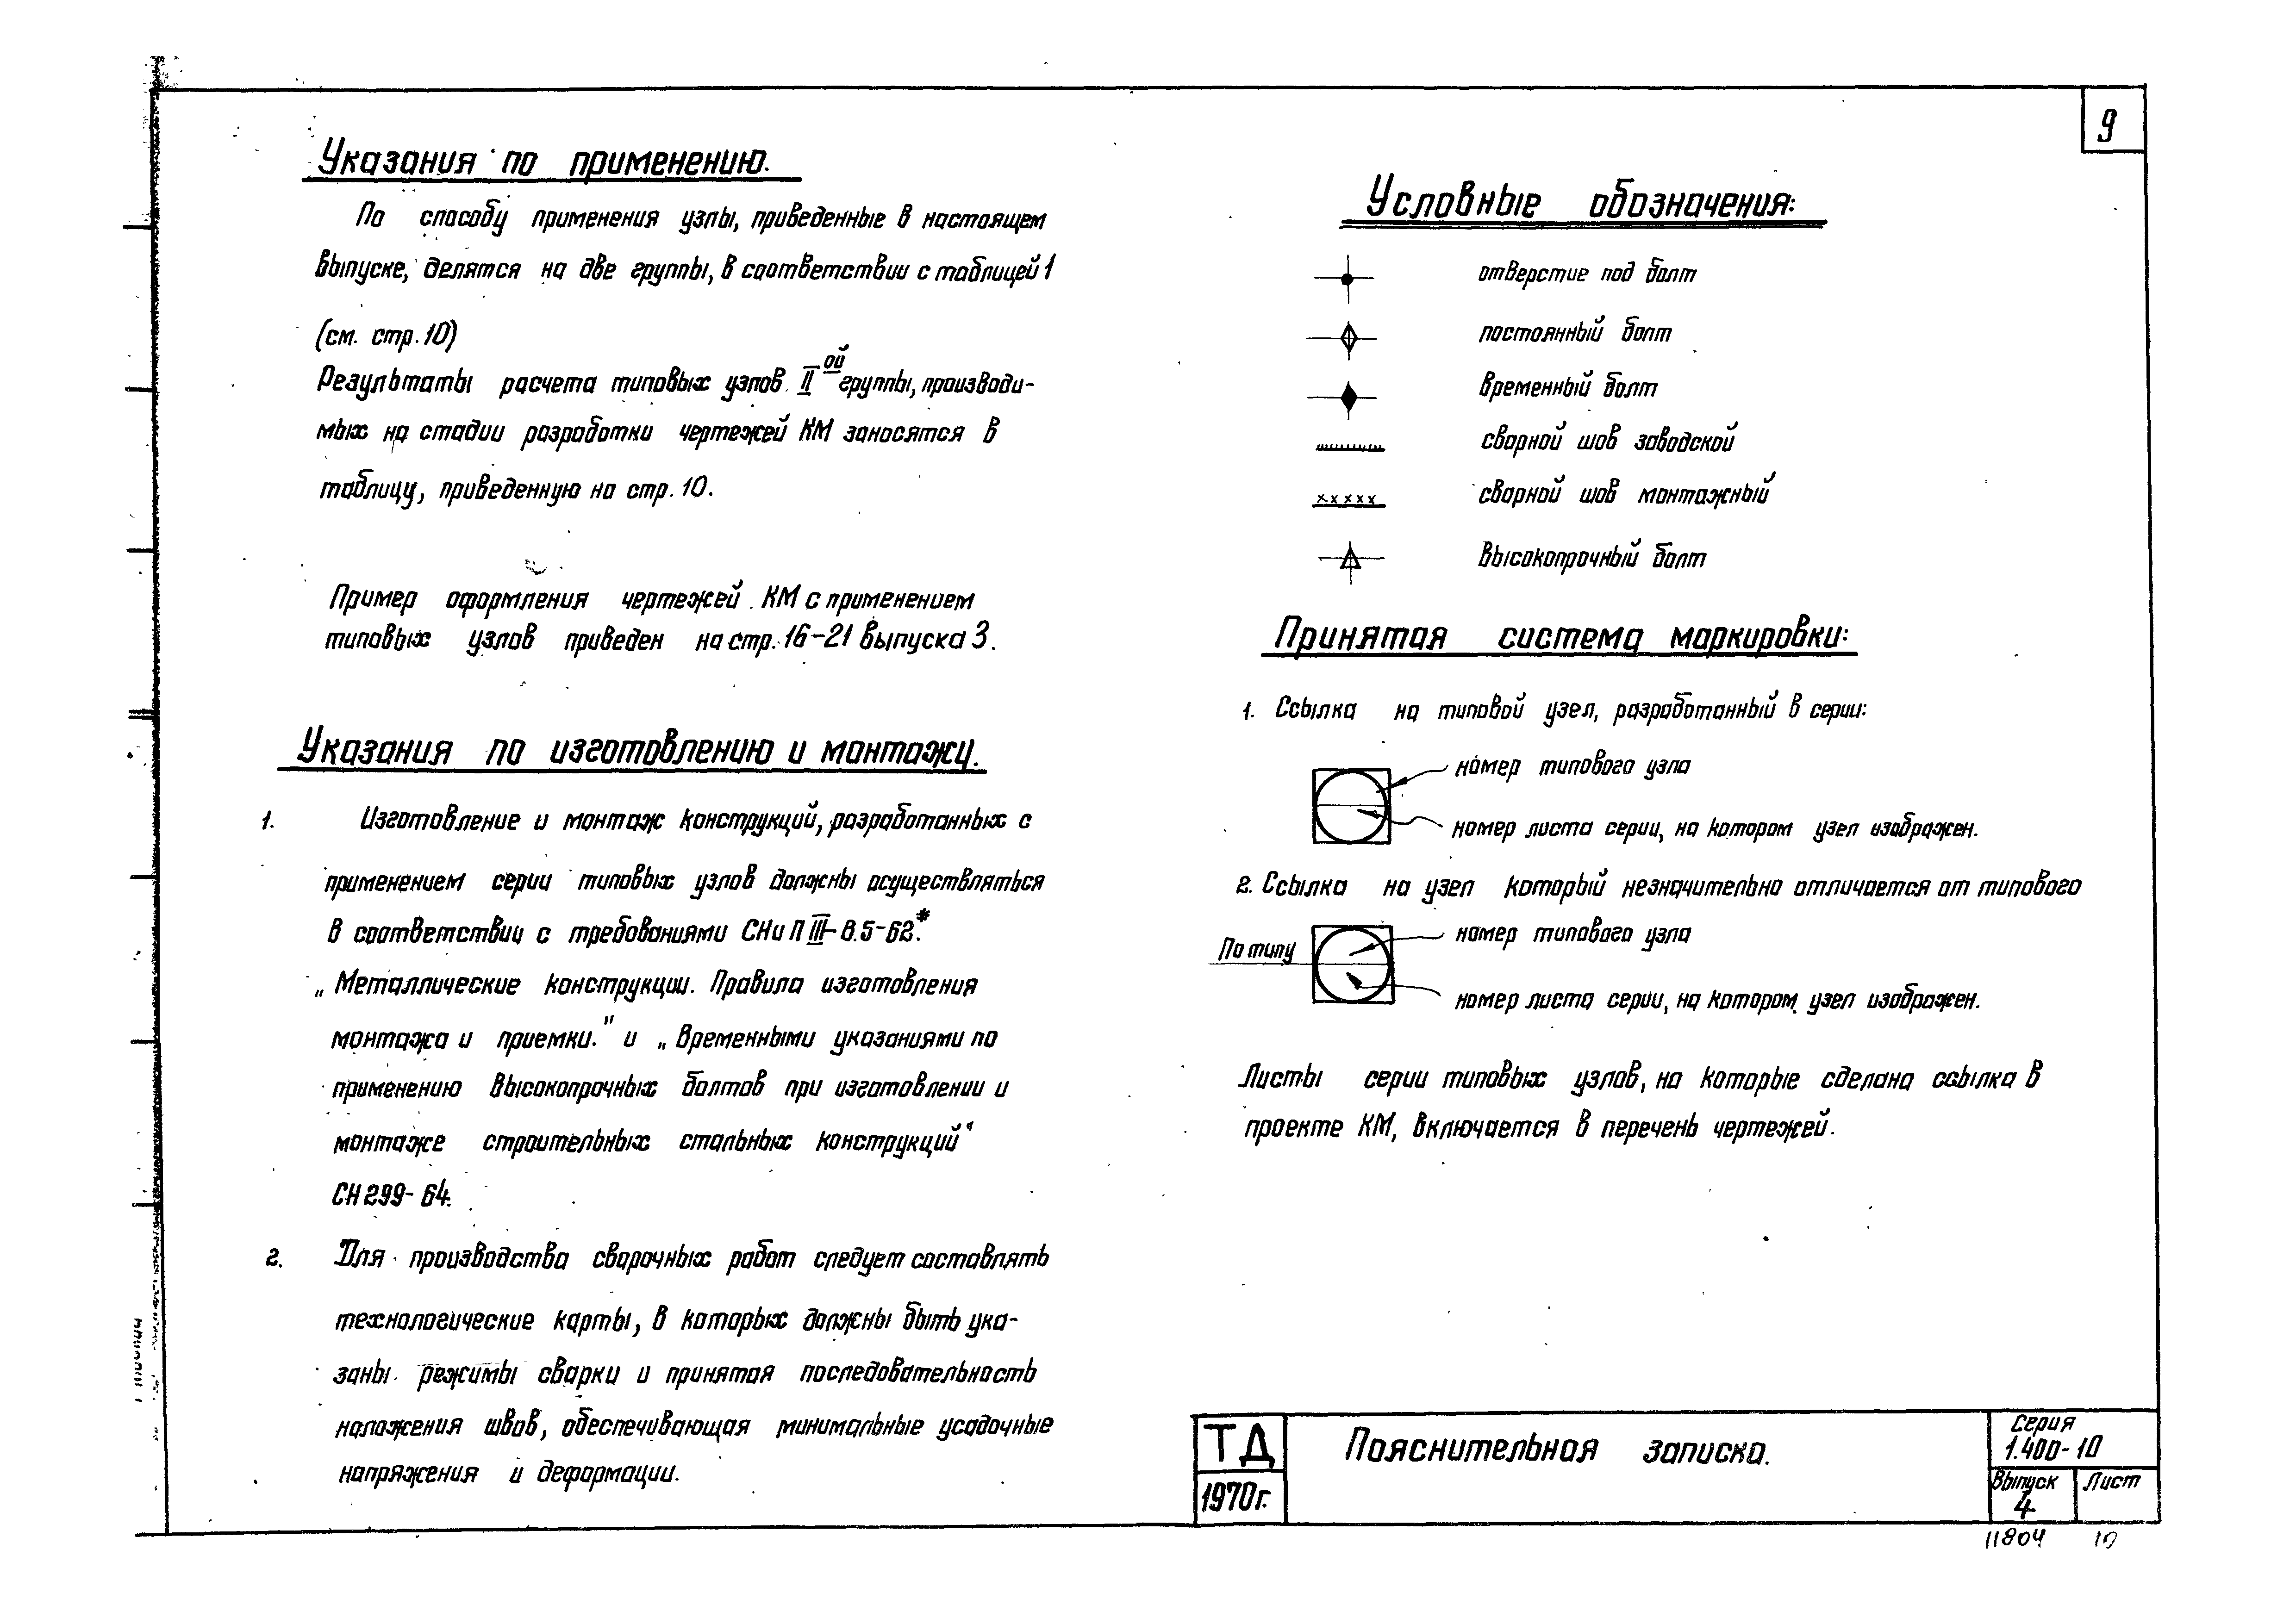 9
Указания по применению.
По способу применения узлы, приведенные в настоящем
выпуске, делятся на две группы, в соответствии с таблицей 1
(см. стр. 10)
Результаты расчета типовых узлов II ой группы, производи-
мых на стадии разработки чертежей КМ заносятся в
таблицу, приведенную на стр. 10.
Пример оформления чертежей КМ с применением
типовых узлов приведен на стр. 16-21 выпуска 3.
Указания по изготовлению и монтажу.
1. Изготовление и монтаж конструкций, разработанных с
применением серии типовых узлов должны осуществляться
в соответствии с требованиями СНиП III-В.5-62.*
„Металлические конструкции. Правила изготовления
монтажа и приемки." и „Временными указаниями по
применению высокопрочных болтов при изготовлении и
монтаже строительных стальных конструкций"
СН 299-64.
2. Для производства сварочных работ следует составлять
технологические карты, в которых должны быть ука-
заны режимы сварки и принятая последовательность
наложения швов, обеспечивающая минимальные усадочные
напряжения и деформации.
Условные обозначения:
отверстие под болт
постоянный болт
временный болт
сварной шов заводской
сварной шов монтажный
высокопрочный болт
Принятая система маркировки:
1. Ссылка на типовой узел, разработанный в серии:
номер типового узла
номер листа серии, на котором узел изображен.
2. Ссылка на узел который незначительно отличается от типового
По типу
номер типового узла
номер листа серии, на котором узел изображен.
Листы серии типовых узлов, на которые сделана ссылка в
проекте КМ, включается в перечень чертежей.
ТД
1970г.
Пояснительная записка.
Серия
1.400-10
Выпуск
4
Лист
11804 10